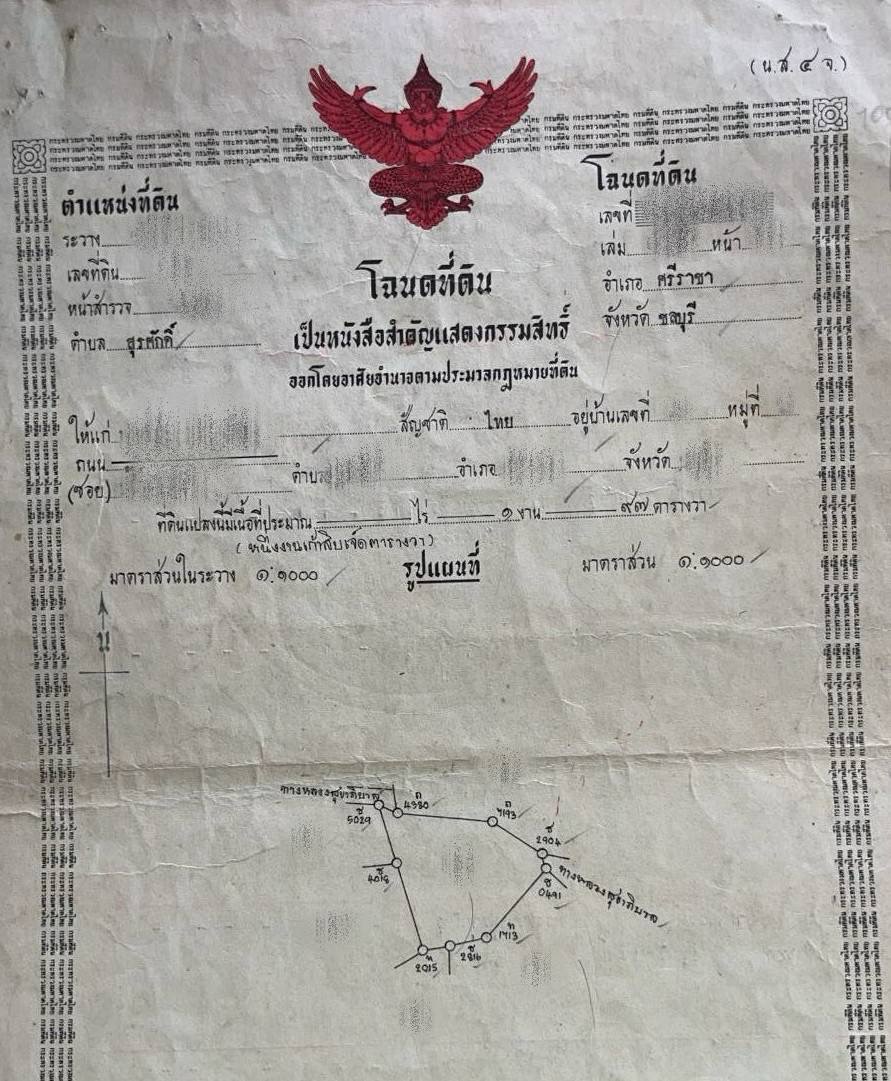 (น.ส. ๔ จ.)
กระทรวงมหาดไทย กรมที่ดิน
ตำแหน่งที่ดิน
ระวาง
เลขที่ดิน
หน้าสำรวจ
ตำบล สุรศักดิ์
โฉนดที่ดิน
เลขที่
เล่ม หน้า
อำเภอ ศรีราชา
จังหวัด ชลบุรี
โฉนดที่ดิน
เป็นหนังสือสำคัญแสดงกรรมสิทธิ์
ออกโดยอาศัยอำนาจตามประมวลกฎหมายที่ดิน
ให้แก่ สัญชาติ ไทย อยู่บ้านเลขที่ หมู่ที่
ถนน ตำบล อำเภอ จังหวัด
(ซอย)
ที่ดินแปลงนี้มีเนื้อที่ประมาณ ไร่ ๑ งาน ๙๗ ตารางวา
(หนึ่งงานเก้าสิบเจ็ดตารางวา)
มาตราส่วนในระวาง ๑:๑๐๐๐ รูปแผนที่ มาตราส่วน ๑:๑๐๐๐
น
ทางหลวงสุขาภิบาล
5029
4380
7193
2904
4018
0491
ทางหลวงสุขาภิบาล
1713
2816
2015